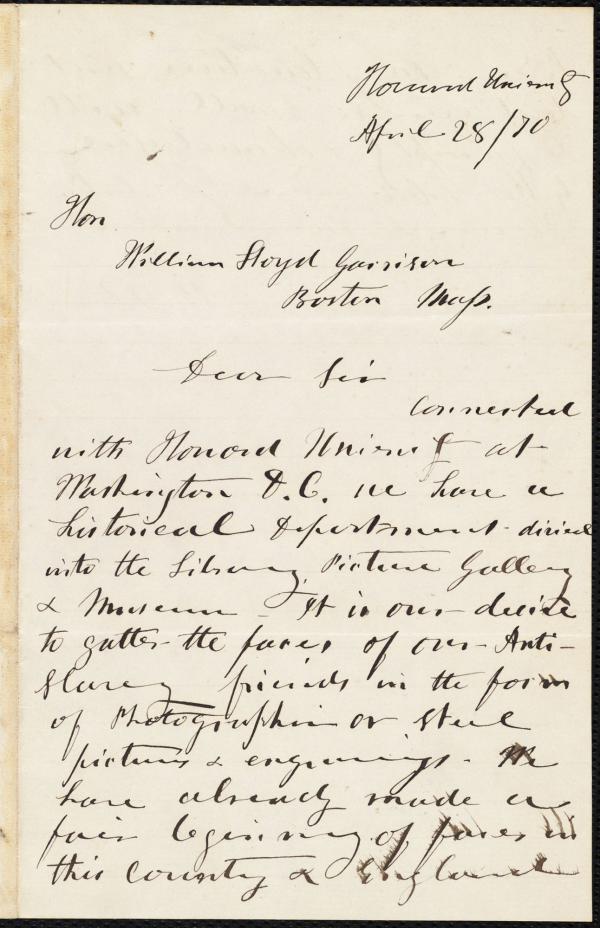 Howard University
April 28/70
Hon
William Lloyd Garrison
Boston Mass.
Dear Sir
Connected
with Howard University at
Washington D.C. we have a
historical Department divied
into the Library, Picture Gallery
& Museum - It is our desire
to gather the faces of our Anti-
Slavery friends in the form
of Photographs or Steel
pictures & engravings. We
have already made a
fair beginning of faces in
this country & England